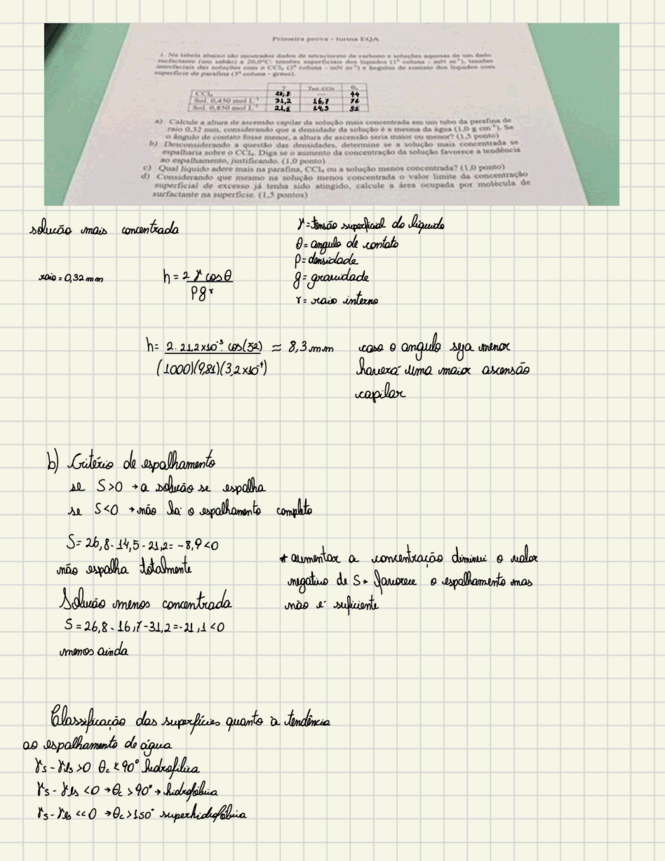 Primeira prova - turma EQA
1. Na tabela abaixo são mostrados dados de tetracloreto de carbono e soluções aquosas de um dado
surfactante (um sabão) a 20,0°C: tensões superficiais dos líquidos (1ª coluna - mN m⁻¹), tensões
interfaciais das soluções com o CCl₄ (2ª coluna - mN m⁻¹) e ângulos de contato dos líquidos com
superfície de parafina (3ª coluna - graus).
γ Ten.CCl₄ θc
CCl₄ 26,8 --- 44
Sol. 0,450 mol L⁻¹ 31,2 16,7 76
Sol. 0,850 mol L⁻¹ 21,2 14,5 52
a) Calcule a altura de ascensão capilar da solução mais concentrada em um tubo da parafina de
raio 0,32 mm, considerando que a densidade da solução é a mesma da água (1,0 g cm⁻³). Se
o ângulo de contato fosse menor, a altura de ascensão seria maior ou menor? (1,5 ponto)
b) Desconsiderando a questão das densidades, determine se a solução mais concentrada se
espalharia sobre o CCl₄. Diga se o aumento da concentração da solução favorece a tendência
ao espalhamento, justificando. (1,0 ponto)
c) Qual líquido adere mais na parafina, CCl₄ ou a solução menos concentrada? (1,0 ponto)
d) Considerando que mesmo na solução menos concentrada o valor limite da concentração
superficial de excesso já tenha sido atingido, calcule a área ocupada por molécula de
surfactante na superfície. (1,5 pontos)
solução mais concentrada
γ = tensão superficial do líquido
θ = angulo de contato
ρ = densidade
g = gravidade
r = raio interno
raio = 0,32 mm
h = 2 γ cosθ
ρgr
h = 2. 21,2x10⁻³. cos(52) ≈ 8,3 mm
(1000)(9,81)(3,2x10⁻⁴)
caso o angulo seja menor
haverá uma maior ascensão
capilar
b) Critério de espalhamento
se S>0 → a solução se espalha
se S<0 → não há o espalhamento completo
S = 26,8 - 14,5 - 21,2 = -8,9 <0
não espalha totalmente
Solução menos concentrada
S = 26,8 - 16,7 - 31,2 = -21,1 <0
menos ainda
* aumentar a concentração diminui o valor
negativo de S → favorece o espalhamento mas
não é suficiente
Classificação das superfícies quanto à tendência
ao espalhamento de água
γs - γls >0 θc < 90° hidrofílica
γs - γls <0 → θc > 90° → hidrofóbica
γs - γls <<0 → θc > 150° superhidrofóbica